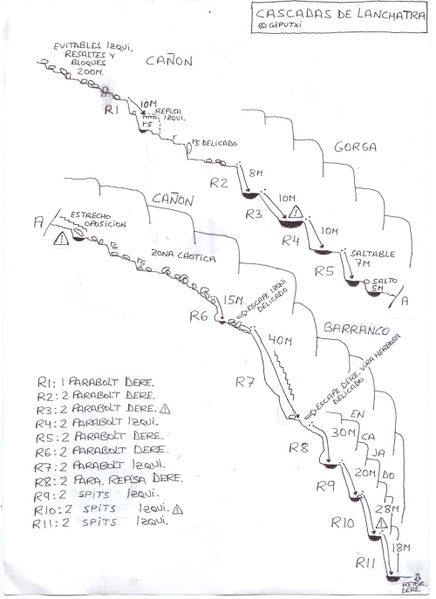 CASCADAS DE LANCHATRA
© GIPUTXI
EVITABLES IZQUI.
RESALTES Y
BLOQUES
200M.
CAÑON
10M
REPISA
IZQUI.
R1
r5
r
r5 DELICADO
GORGA
R2
8M
R3
10M
R4
10M
R5
SALTABLE
7M
SALTO
5M
A
CAÑON
A
ESTRECHO
OPOSICION
r6
r5
ZONA CAOTICA
15M
ESCAPE IZQUI
DELICADO
R6
BARRANCO
40M
R7
ESCAPE DERE. VIRA HERBOSA
DELICADO
EN
CA
JA
DO
30M
R8
20M
R9
28M
R10
18M
R11
RETOR.
DERE.
R1: 1 PARABOLT DERE.
R2: 2 PARABOLT DERE.
R3: 2 PARABOLT DERE.
R4: 2 PARABOLT IZQUI.
R5: 2 PARABOLT DERE.
R6: 2 PARABOLT DERE.
R7: 2 PARABOLT IZQUI.
R8: 2 PARA. REPISA DERE.
R9: 2 SPITS IZQUI.
R10: 2 SPITS IZQUI.
R11: 2 SPITS IZQUI.